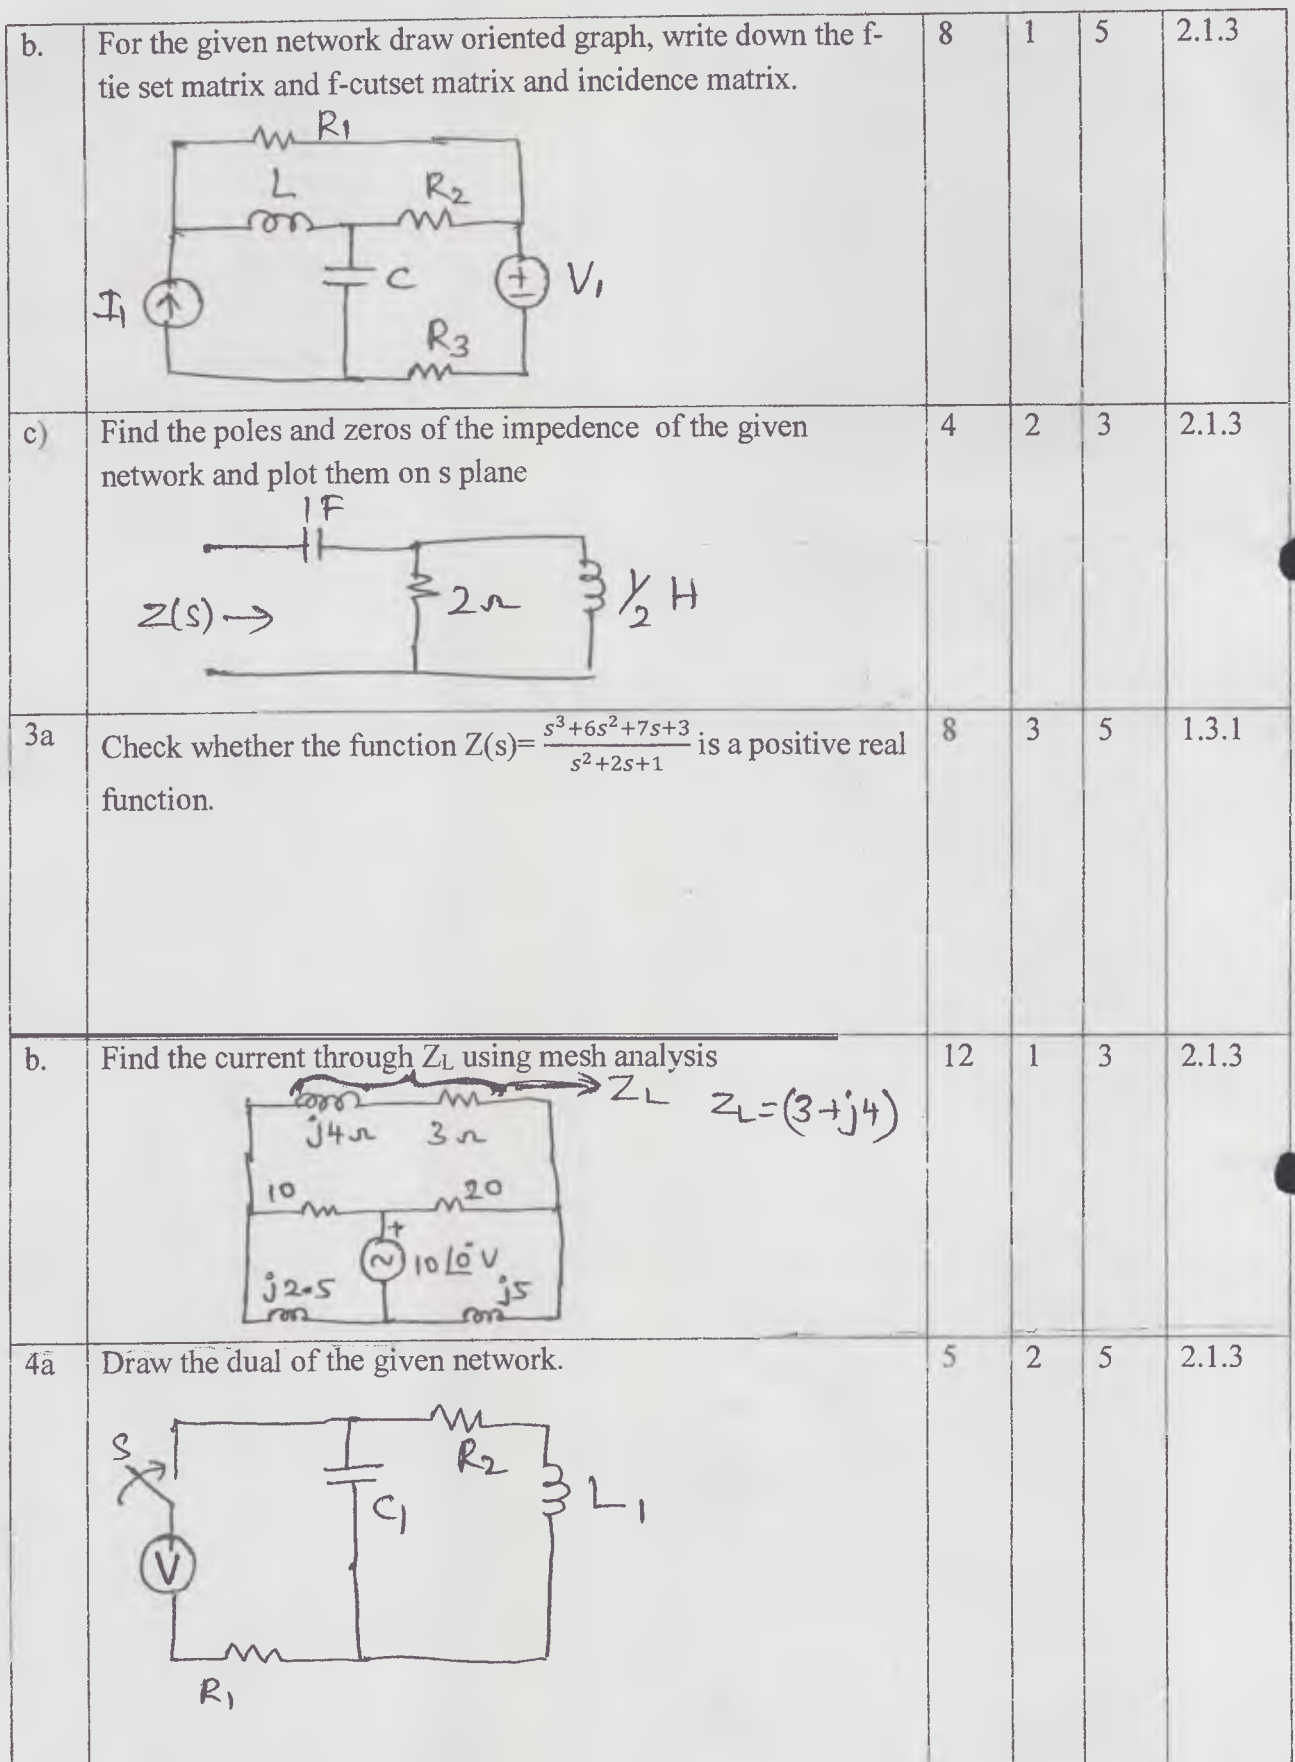 b. For the given network draw oriented graph, write down the f- 8 1 5 2.1.3
tie set matrix and f-cutset matrix and incidence matrix.
R1
L R2
C V1
I1
R3
c) Find the poles and zeros of the impedence of the given 4 2 3 2.1.3
network and plot them on s plane
1F
Z(s)→ 2Ω 1/2 H
3a Check whether the function Z(s)= (s³+6s²+7s+3)/(s²+2s+1) is a positive real 8 3 5 1.3.1
function.
b. Find the current through ZL using mesh analysis 12 1 3 2.1.3
ZL ZL=(3+j4)
j4Ω 3Ω
10 20
+
10∠0° V
j2.5 j5
4a Draw the dual of the given network. 5 2 5 2.1.3
S R2
C1 L1
V
R1